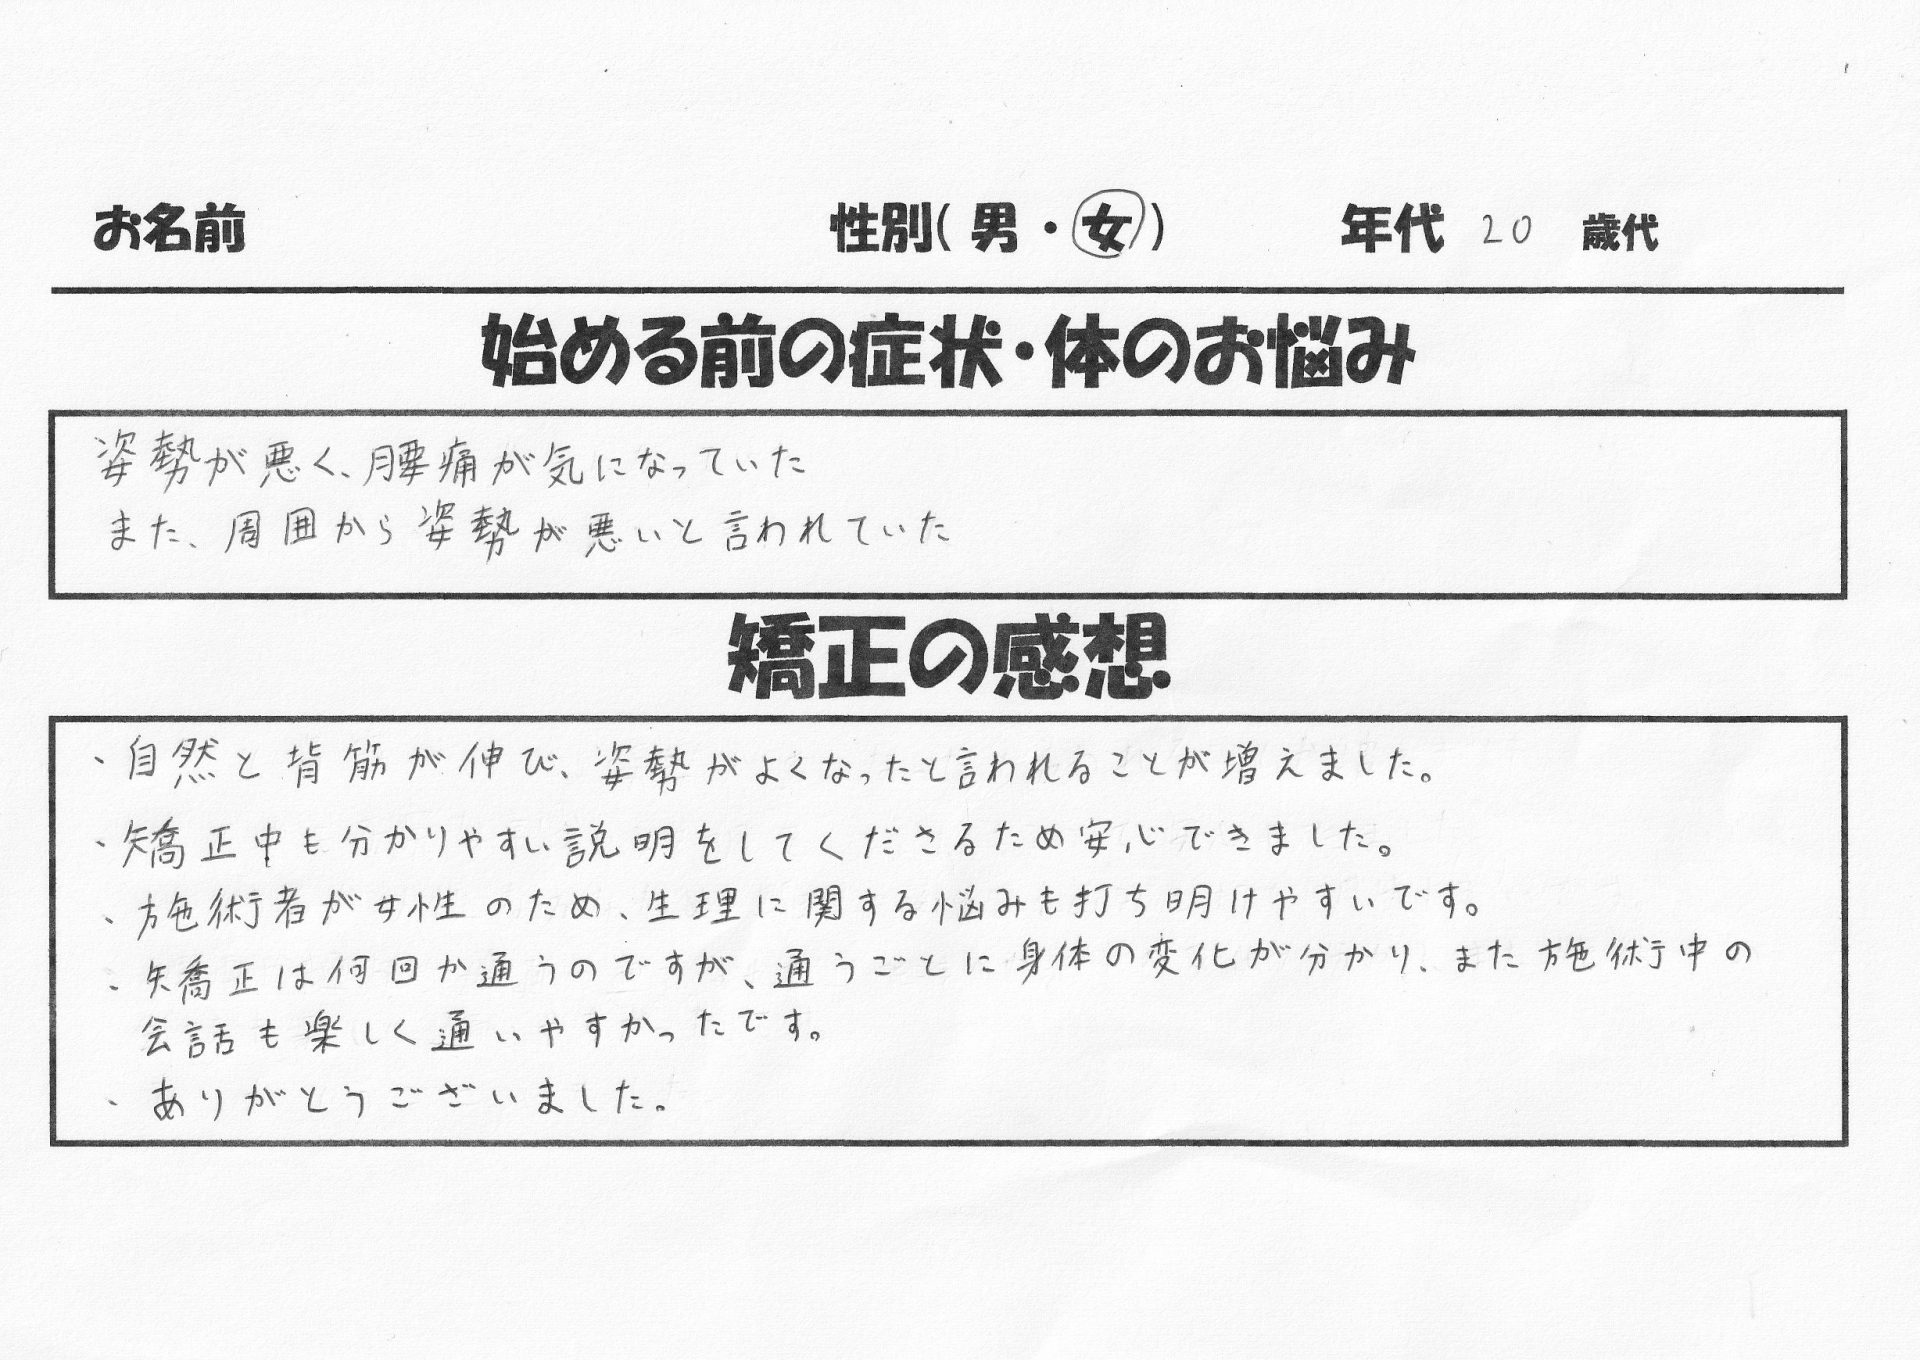 お名前 性別(男・女) 年代 20 歳代
始める前の症状・体のお悩み
姿勢が悪く、腰痛が気になっていた
また、周囲から姿勢が悪いと言われていた
矯正の感想
・自然と背筋が伸び、姿勢がよくなったと言われることが増えました。
・矯正中も分かりやすい説明をしてくださるため安心できました。
・施術者が女性のため、生理に関する悩みも打ち明けやすいです。
・矯正は何回か通うのですが、通うごとに身体の変化が分かり、また施術中の
会話も楽しく通いやすかったです。
・ありがとうございました。